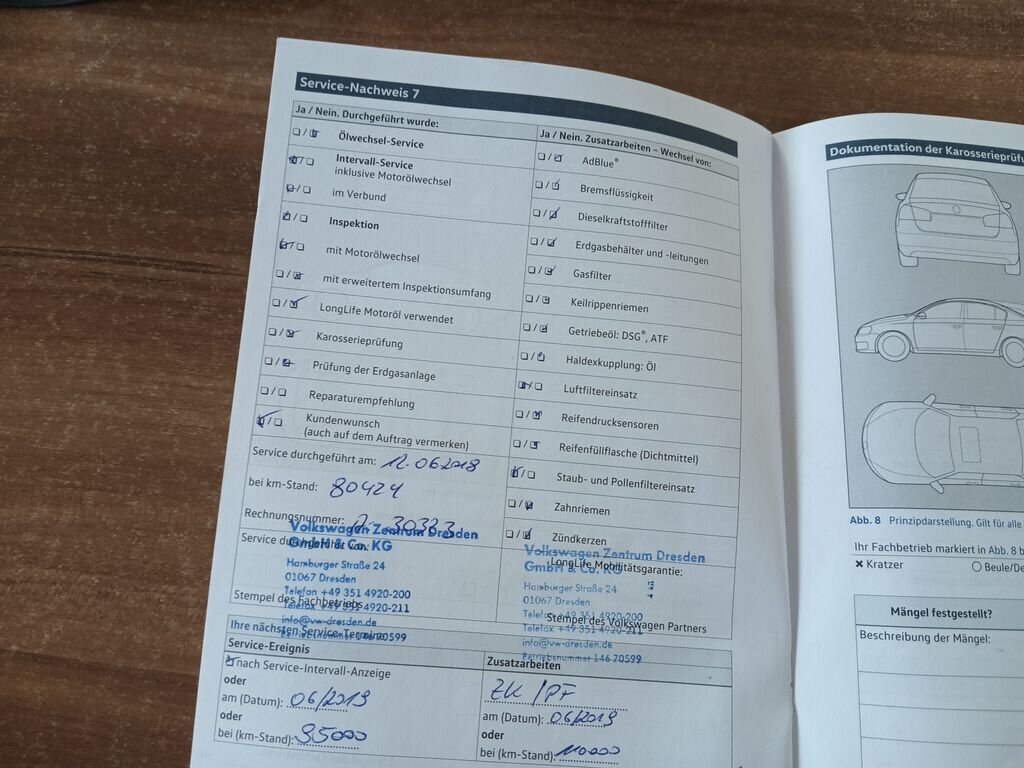 Service-Nachweis 7
Ja / Nein. Durchgeführt wurde:
Ölwechsel-Service
Intervall-Service
inklusive Motorölwechsel
im Verbund
Inspektion
mit Motorölwechsel
mit erweitertem Inspektionsumfang
LongLife Motoröl verwendet
Karosserieprüfung
Prüfung der Erdgasanlage
Reparaturempfehlung
Kundenwunsch
(auch auf dem Auftrag vermerken)
Service durchgeführt am: 12.06.2018
bei km-Stand: 80424
Rechnungsnummer:
Volkswagen Zentrum Dresden
GmbH & Co. KG
Hamburger Straße 24
01067 Dresden
Telefon +49 351 4920-200
Telefax +49 351 4920-211
info@vw-dresden.de
Betriebsnummer 146 70599
Stempel des Fachbetriebs
Ja / Nein. Zusatzarbeiten – Wechsel von:
AdBlue®
Bremsflüssigkeit
Dieselkraftstofffilter
Erdgasbehälter und -leitungen
Gasfilter
Keilrippenriemen
Getriebeöl: DSG®, ATF
Haldexkupplung: Öl
Luftfiltereinsatz
Reifendrucksensoren
Reifenfüllflasche (Dichtmittel)
Staub- und Pollenfiltereinsatz
Zahnriemen
Zündkerzen
LongLife Mobilitätsgarantie:
Volkswagen Zentrum Dresden
GmbH & Co. KG
Hamburger Straße 24
01067 Dresden
Telefon +49 351 4920-200
Telefax +49 351 4920-211
info@vw-dresden.de
Betriebsnummer 146 70599
Stempel des Volkswagen Partners
Ihre nächsten Service-Termine
Service-Ereignis
nach Service-Intervall-Anzeige
oder
am (Datum): 06/2019
oder
bei (km-Stand): 95000
Zusatzarbeiten
ZK / PF
am (Datum): 06/2019
oder
bei (km-Stand): 110000
Dokumentation der Karosserieprüfu
Abb. 8 Prinzipdarstellung. Gilt für alle
Ihr Fachbetrieb markiert in Abb. 8 b
Kratzer
Beule/De
Mängel festgestellt?
Beschreibung der Mängel: